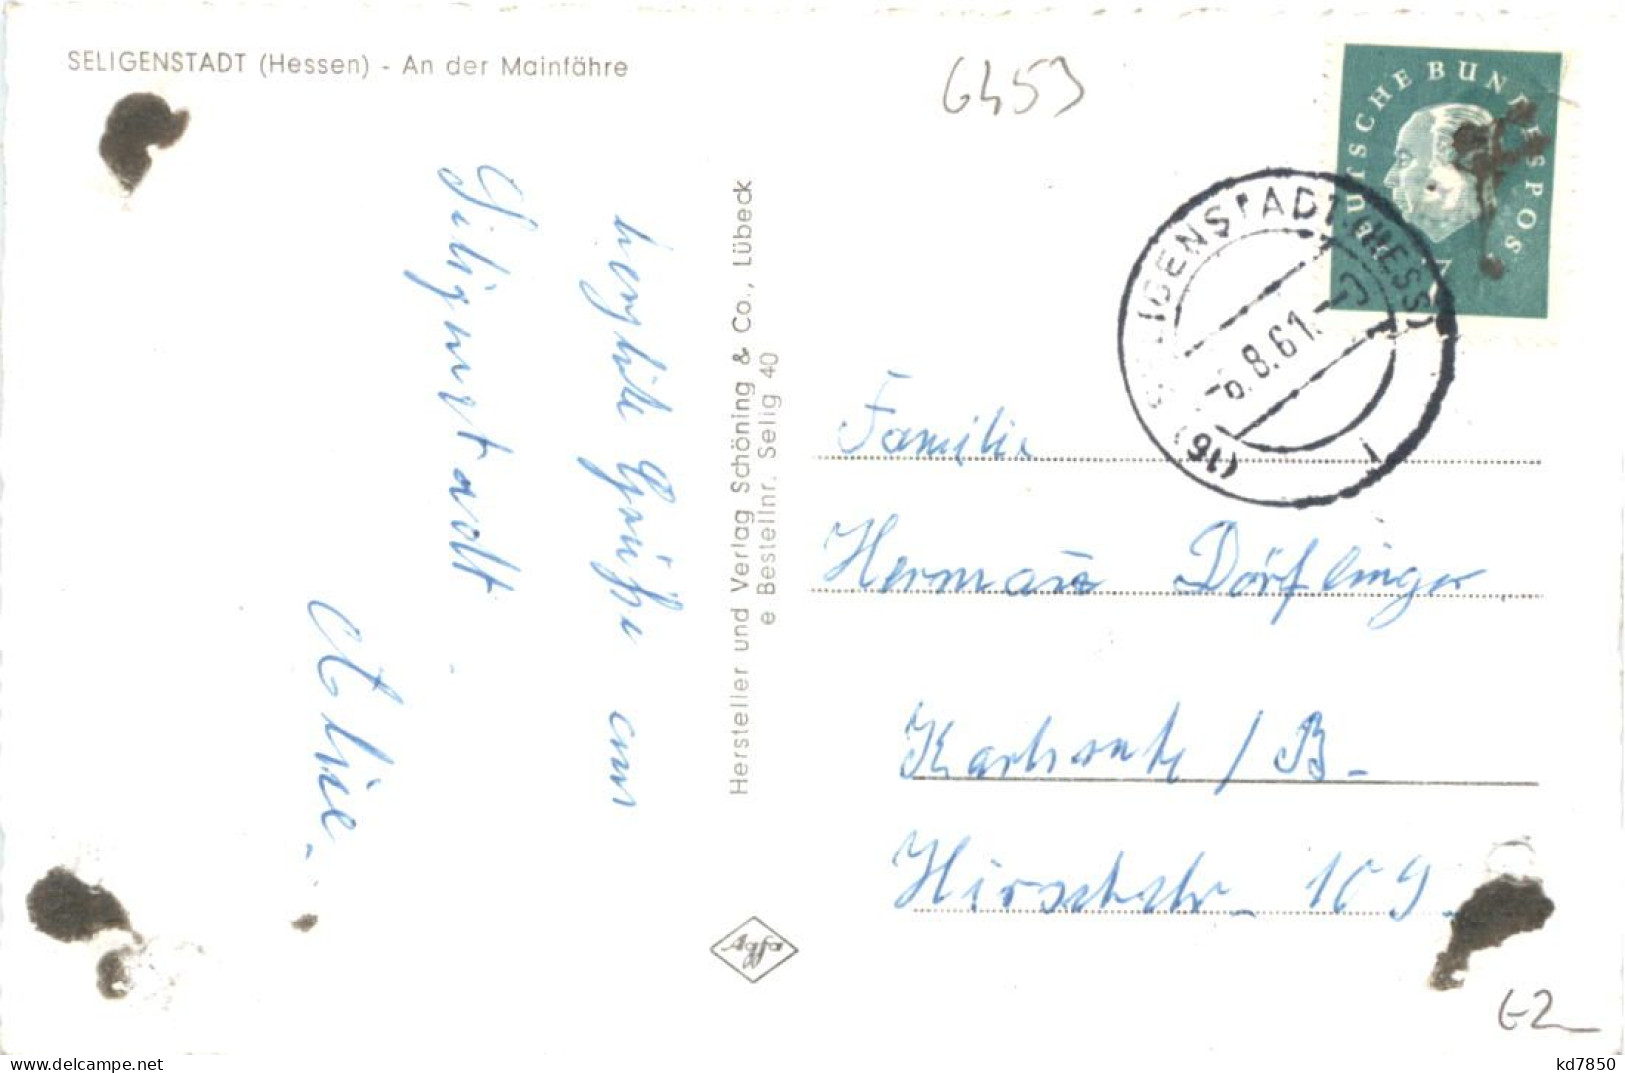 SELIGENSTADT (Hessen) - An der Mainfähre
6453
DEUTSCHE BUNDESPOST
SELIGENSTADT (HESS)
6.8.61.-
(16)
herzliche Grüße aus
Seligenstadt
Hersteller und Verlag Schöning & Co., Lübeck
e Bestellnr. Selig 40
Agfa
Familie
Hermann Dörflinger
Karlsruhe / B.
Hirschstr. 109.
kd7850